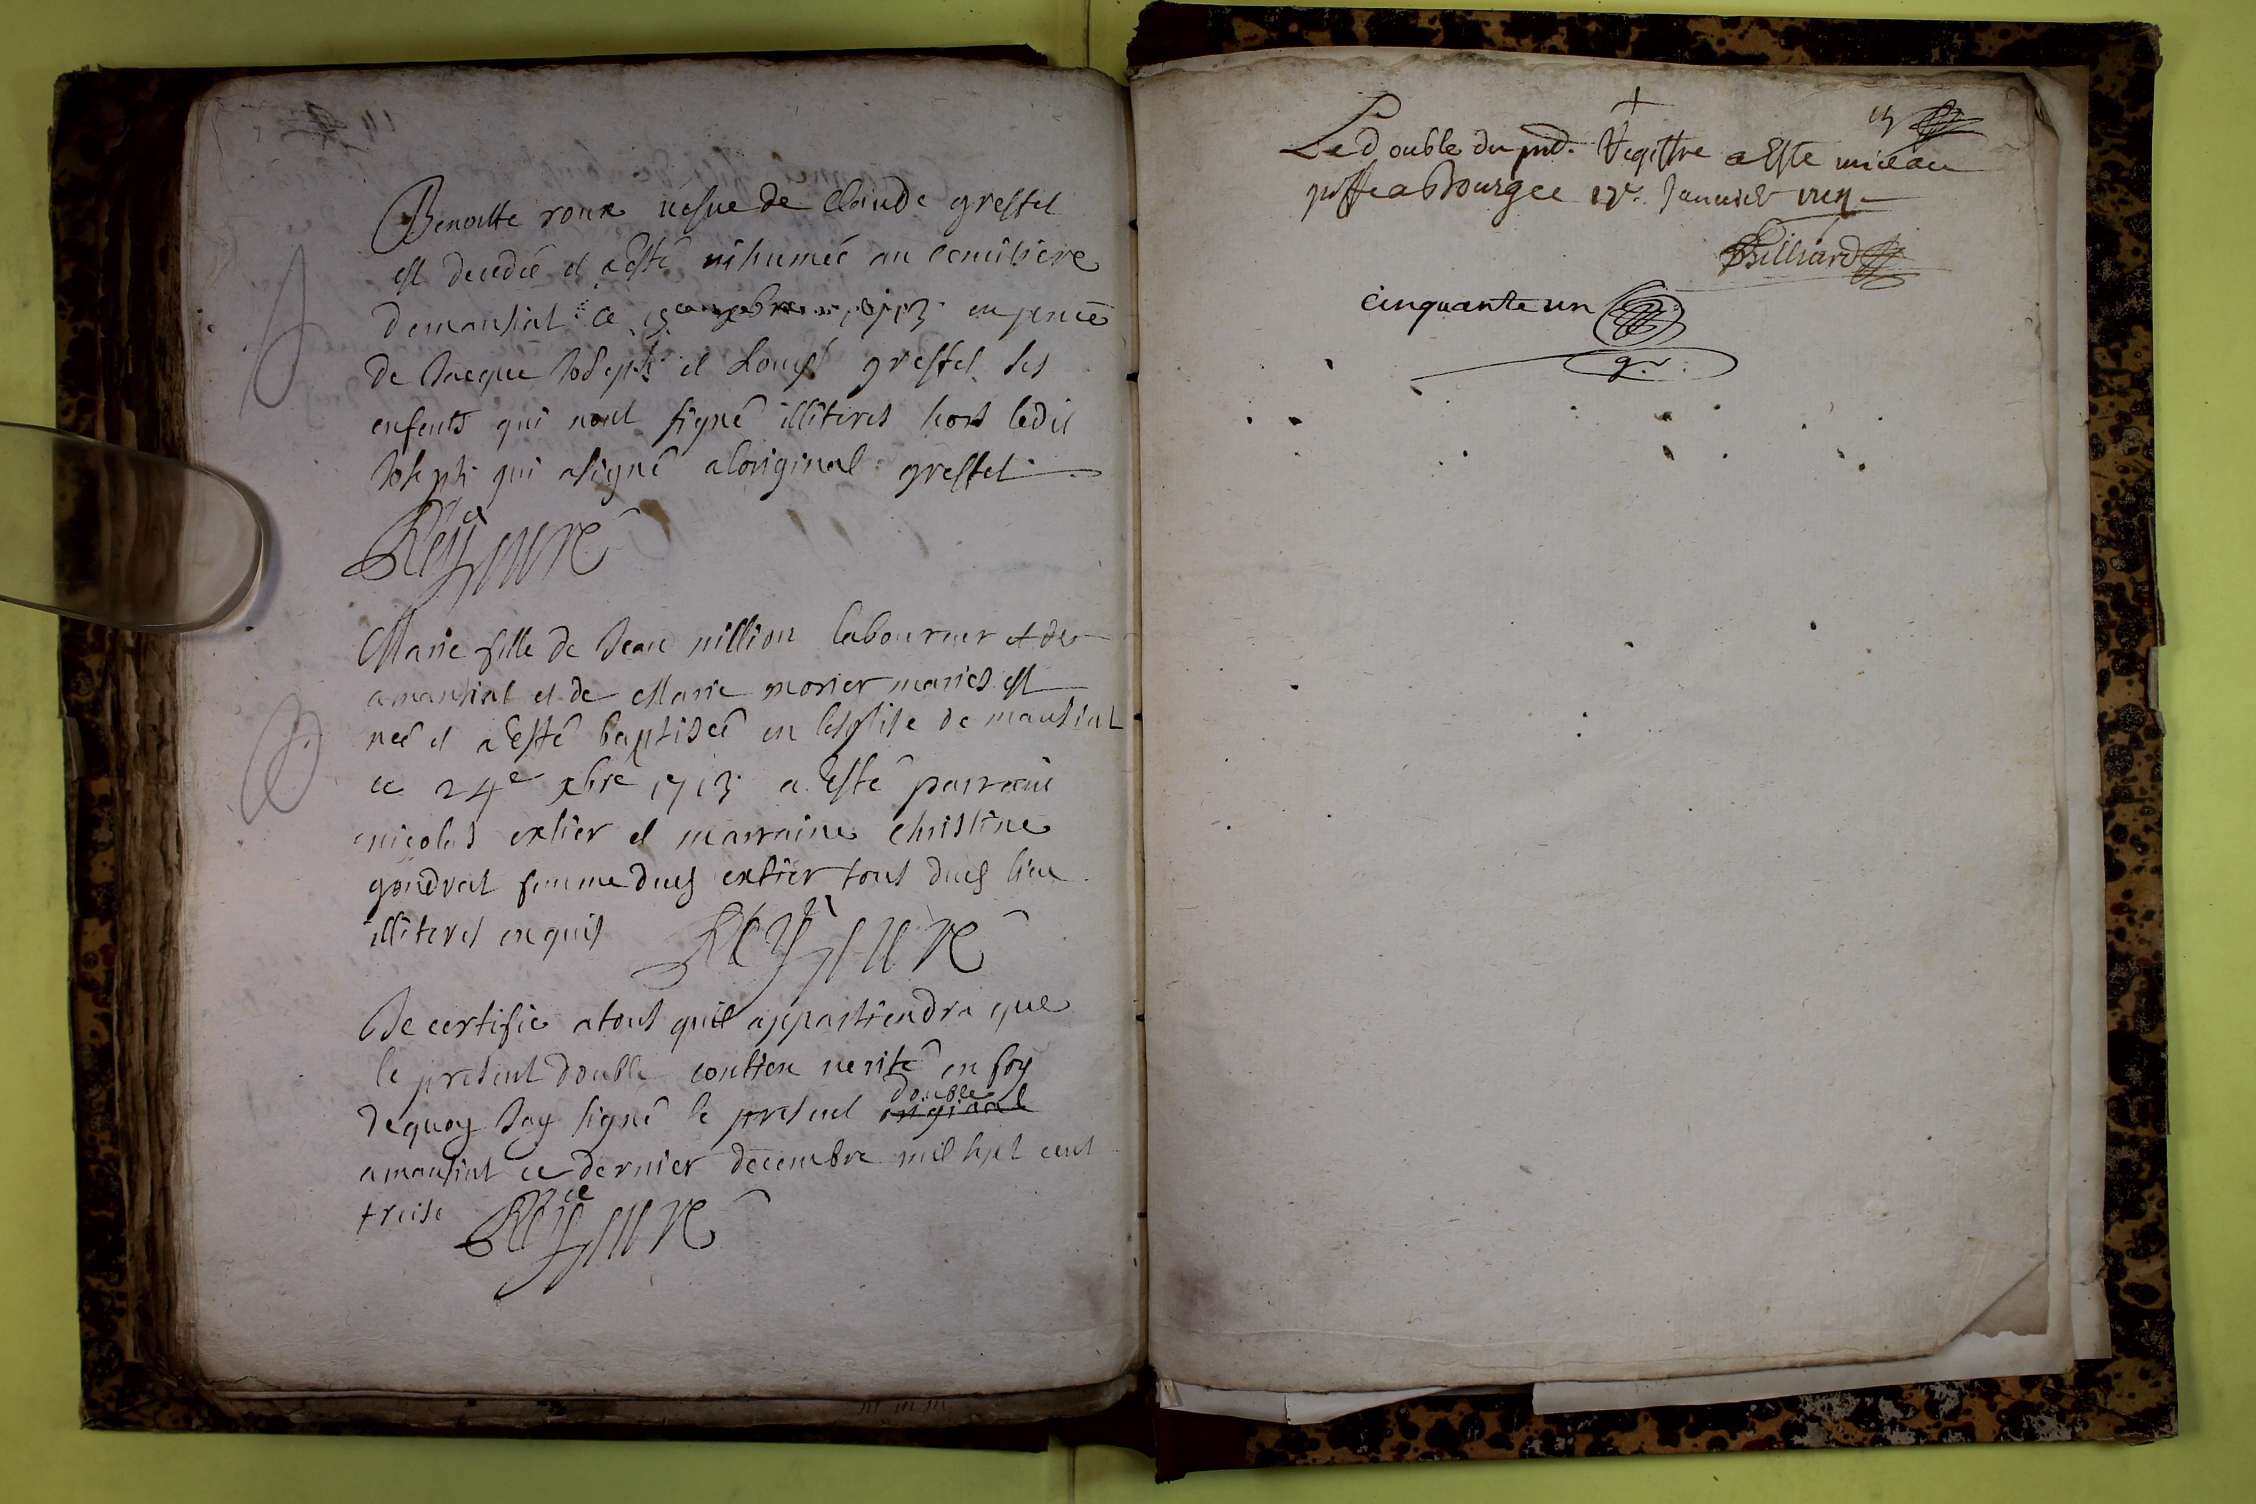 Benoitte roux vesve de Claude greffet
est decedée et a Esté inhumée au cemitiere
demansiat ce 1713 en pnce
de Jacque Joseph et Louys greffet ses
enfents qui nont signé illiteres hors ledit
Joseph qui asigné aloriginal greffet
Rey curé
Marie fille de Jean million laboureur
amansiat et de Marie morier mariés est
neé et a Esté baptiseé en lesglise de mansiat
ce 24e xbre 1713 a Esté parrain
nicolas extier et marraine Christine
gondrat femme dud extier tous dud lieu
illiteres enquis Rey curé
Je certifie atous quil appartiendra que
le present double contien verité en foy
dequoy Jay signé le present double original
amansiat ce dernier decembre mil sept cent
treise Rey curé
Le double du pnt. Registre a Este mis au
greffe a Bourg ce Janvier
Billiard
cinquante un